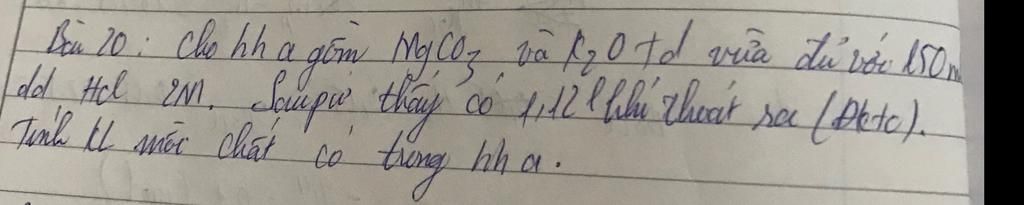 Bài 20: Cho hh a gồm MgCO3 và K2O td vừa đủ với 150m
dd Hcl 2M. Sau pư thấy có 1,12 l khí thoát ra (Đktc).
Tính kl mỗi chất có trong hh a.